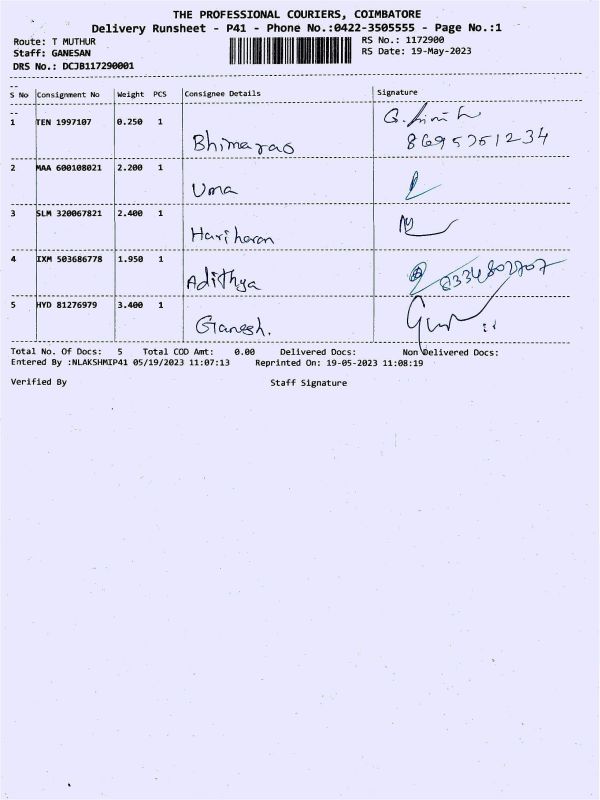 THE PROFESSIONAL COURIERS, COIMBATORE
Delivery Runsheet - P41 - Phone No.:0422-3505555 - Page No.:1
Route: T MUTHUR RS No.: 1172900
Staff: GANESAN RS Date: 19-May-2023
DRS No.: DCJB117290001
S No Consignment No Weight PCS Consignee Details Signature
1 TEN 1997107 0.250 1
Bhimarao
2 MAA 600108021 2.200 1
Uma
3 SLM 320067821 2.400 1
Hariharan
4 IXM 503686778 1.950 1
Adithya
5 HYD 81276979 3.400 1
Ganesh.
Total No. Of Docs: 5 Total COD Amt: 0.00 Delivered Docs: Non Delivered Docs:
Entered By :NLAKSHMIP41 05/19/2023 11:07:13 Reprinted On: 19-05-2023 11:08:19
Verified By Staff Signature